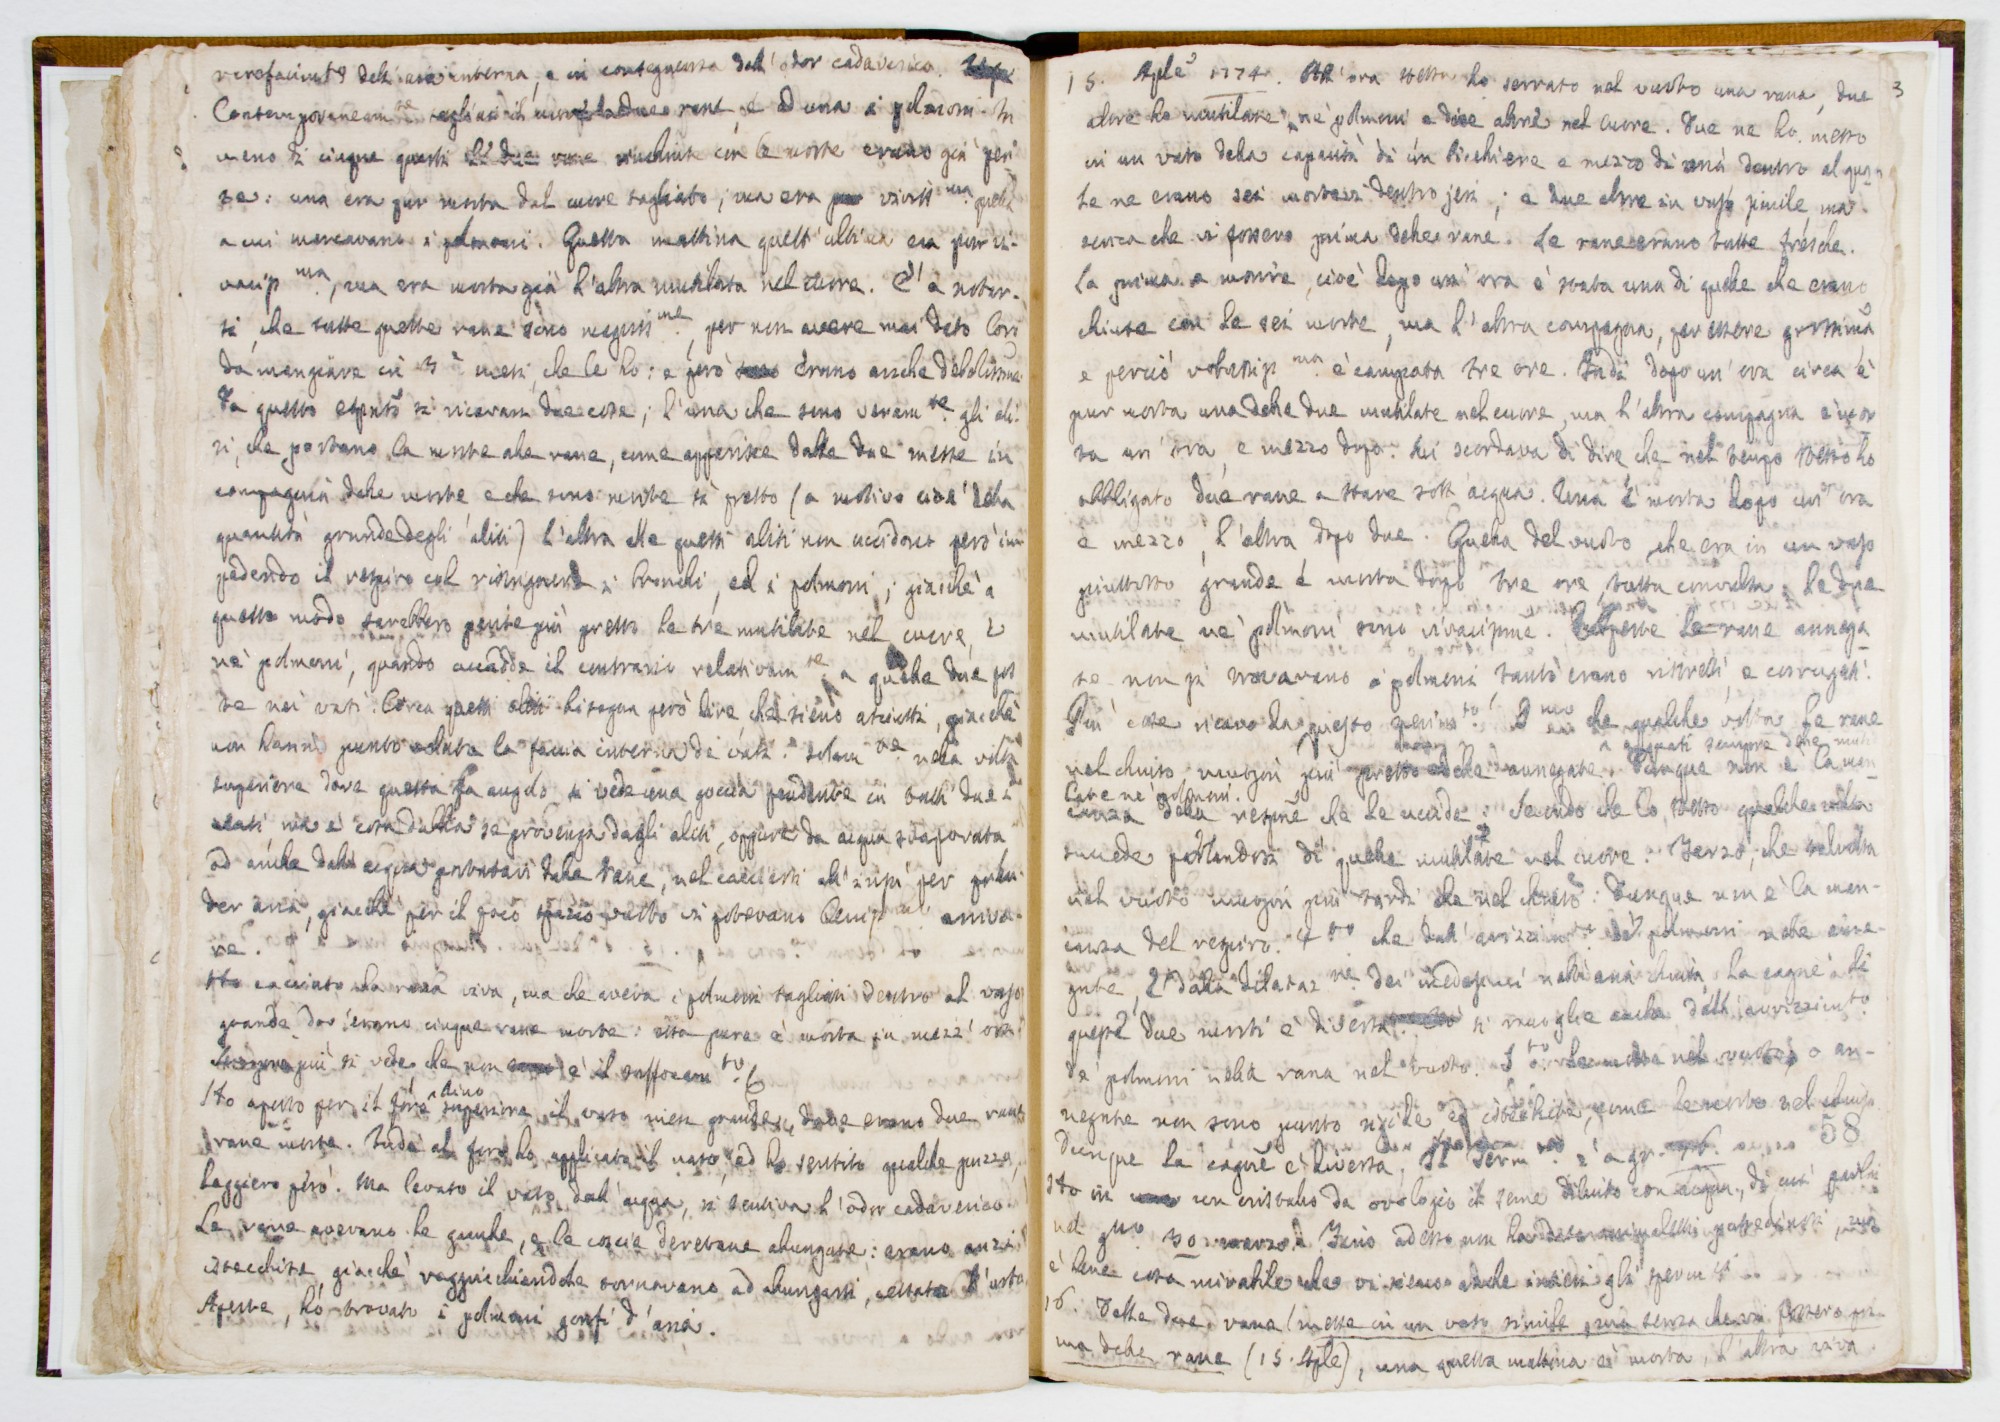 rarefacim.to dell'aria interna, e in conseguenza dell'odor cadaverico.
Contemporaneam.te tagliato il cuore a due rane, e ad una i polmoni. In
meno di cinque questi le due rane rinchiuse con le morte erano già peri-
te: una era pur morta dal cuore tagliato; ma era viviss.ma quella
a cui mancavano i polmoni. Questa mattina quest'ultima era pur vi-
vaciss.ma, ma era morta già l'altra mutilata nel cuore. E' a notar-
si, che tutte queste rane sono magriss.me, per non avere mai dato loro
da mangiare in mesi, che le ho: e però erano anche debolissime
Da questo esper.to si ricavan due cose; l'una che sono veram.te gli ali-
ti, che portano la morte alle rane, come apparisce dalle due messe in
compagnia delle morte e che sono morte sì presto (a motivo cioè della
quantità grande degli aliti) l'altra che questi aliti non uccidono però im-
pedendo il respiro col ristringnere i bronchi, ed i polmoni; giacchè a
questo modo sarebbero perite più presto le tre mutilate nel cuore, e
ne' polmoni, quando accadde il contrario relativam.te a quelle due pos-
te nei vasi. Circa questi aliti bisogna però dire che sieno asciutti, giacchè
non hanno punto la faccia interna de' vasi. Solam.te nella volta
superiore dove questa fa angolo si vede una goccia pendente in tutti due i
vasi ma è cosa dubbia se provenga dagli aliti, oppure da acqua svaporata,
od anche dall'acqua portatavi dalle rane, nel cacciarsi all'insù per pren-
der aria, giacchè per il foco spazio vi potevano beniss.mo arriva-
re.
Ho cacciato una rana viva, ma che aveva i polmoni tagliati dentro al vaso
grande dov'erano cinque rane morte: essa pure è morta in mezz'ora
Sempre più si vede che non è il soffocam.to
Ho aperto per il foro superiore il vaso men grande, dove erano due rane
rane morte. Indi al foro ho applicato il naso, ed ho sentito qualche puzza,
leggiero però. Ma levato il vaso dall'acqua, si sentiva l'odor cadaverico.
Le rane avevano le gambe, e le coscie deretane allungate: erano anzi
istecchite, giacchè raggricchiandole tornavano ad allungarsi, cessata l'urto
Aperte, ho trovato i polmoni gonfi d'aria.
3
15. Aple 1774. All'ora stessa ho serrato nel vuoto una rana, due
altre ho mutilate ne' polmoni e due altre nel cuore. Due ne ho messo
in un vaso della capacità di un bicchiere e mezzo di aria dentro al qua-
le ne erano sei mortevi dentro jeri; e due altre in vaso simile, ma
senza che vi fossero prima delle rane. Le rane erano tutte fresche.
La prima a morire, cioè dopo un'ora è stata una di quelle che erano
chiuse con le sei morte, ma l'altra compagna, per essere grossissima
e perciò robustiss.ma è campata tre ore. Indi dopo un'ora circa è
pur morta una delle due mutilate nel cuore, ma l'altra compagna è mor-
ta un'ora e mezzo dopo. Mi scordava di dire che nel tempo stesso ho
obbligato due rane a stare sott'acqua. Una è morta dopo un'ora
e mezzo, l'altra dopo due. Quella del vuoto che era in un vaso
piuttosto grande è morta dopo tre ore, tutta convulsa. Le due
mutilate ne' polmoni sono vivacissime. Aperte le rane annega-
te non si trovavano i polmoni, tanto erano ristretti, e corrugati.
Più cose ricavo da questo sperim.to P.mo che qualche volta le rane
nel chiuso muojon più presto delle annegate, Dunque non è la man-
a quanti sempre delle muti-
late ne' polmoni.
canza della respir.ne che le uccide. Secondo che lo stesso qualche volta
succede parlandosi di quelle mutilate nel cuore. Terzo, che talvolta
nel vuoto muojon più tardi che nel chiuso: Dunque non è la man-
canza del respiro. 4.to che dall'avvizzim.to de' polmoni nelle anne-
gate, e dalla dilataz.ne dei medesimi nell'aria chiusa, la cagne di
queste due morti è diversa. si raccoglie anche dall'avvizzim.to
de' polmoni nella rana nel vuoto. 5.to che messe nel vuoto, o an-
negate non sono punto rigide ed istecchite, come le morte nel chiuso
Dunque la cagne è diversa. Il Term.ro è a gr. 16.
58
Ho in un cristallo da orologio il seme diluito con acqua, di cui parlai
nel g.no 30 marzo. Fino adesso non ha
è bene cosa mirabile che vi sieno anche intieri gli
16. Delle due rane (messe in un vaso simile, ma senza che vi fossero pri-
ma delle rane (15. Aple), una questa mattina è morta, l'altra viva.